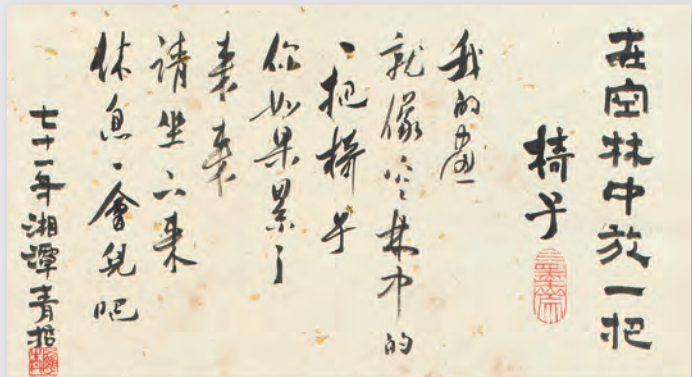 在空林中放一把
椅子
我的画
就像空林中的
一把椅子
你如果累了
来来
請坐下来
休息一會兒吧
七十一年湘潭青哲